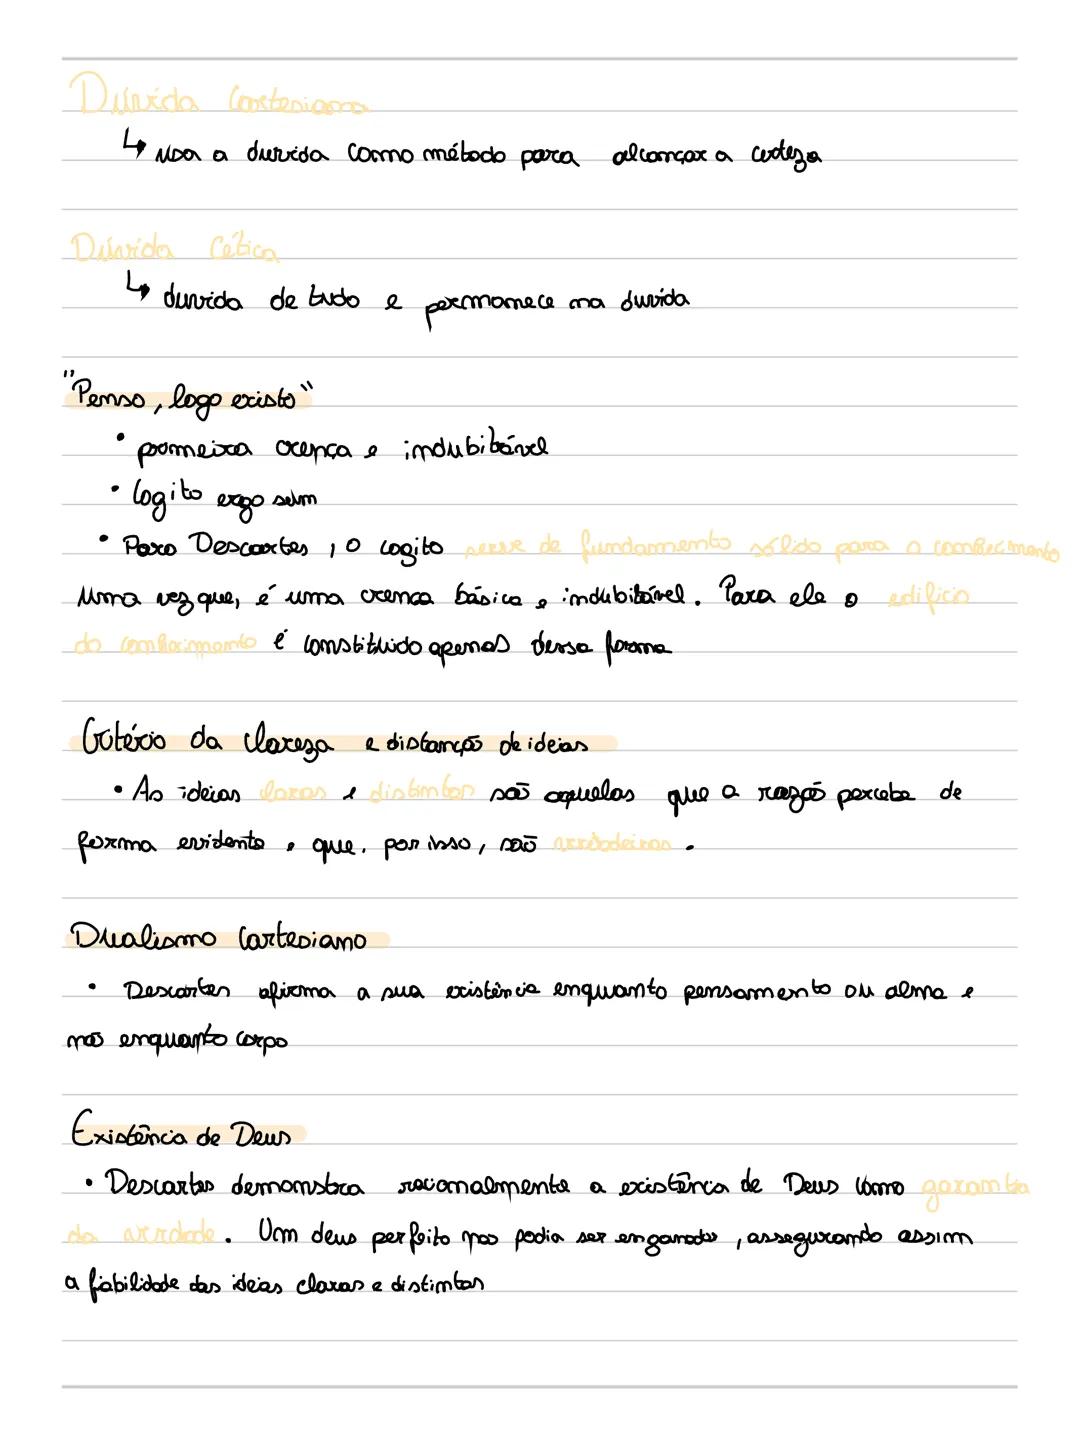 Dúvida Cartesiana
↳ usa a duvida como método para alcançar a certeza
Dúvida Cética
↳ duvida de tudo e permanece na duvida
"Penso, logo existo"
• primeira crença e indubitável
• Cogito ergo sum
• Para Descartes, o cogito serve de fundamento sólido para o conhecimento
uma vez que, é uma crença básica e indubitável. Para ele o edificio
do conhecimento é constituido apenas dessa forma
Critério da clareza e distanção de ideias
• As ideias claras e distintas são aquelas que a razão percebe de
forma evidente e que, por isso, são verdadeiras.
Dualismo Cartesiano
• Descartes afirma a sua existência enquanto pensamento ou alma e
não enquanto corpo
Existência de Deus
• Descartes demonstra racionalmente a existência de Deus como garantia
da verdade. Um deus perfeito não podia ser enganador, assegurando assim
a fiabilidade das ideias claras e distintas